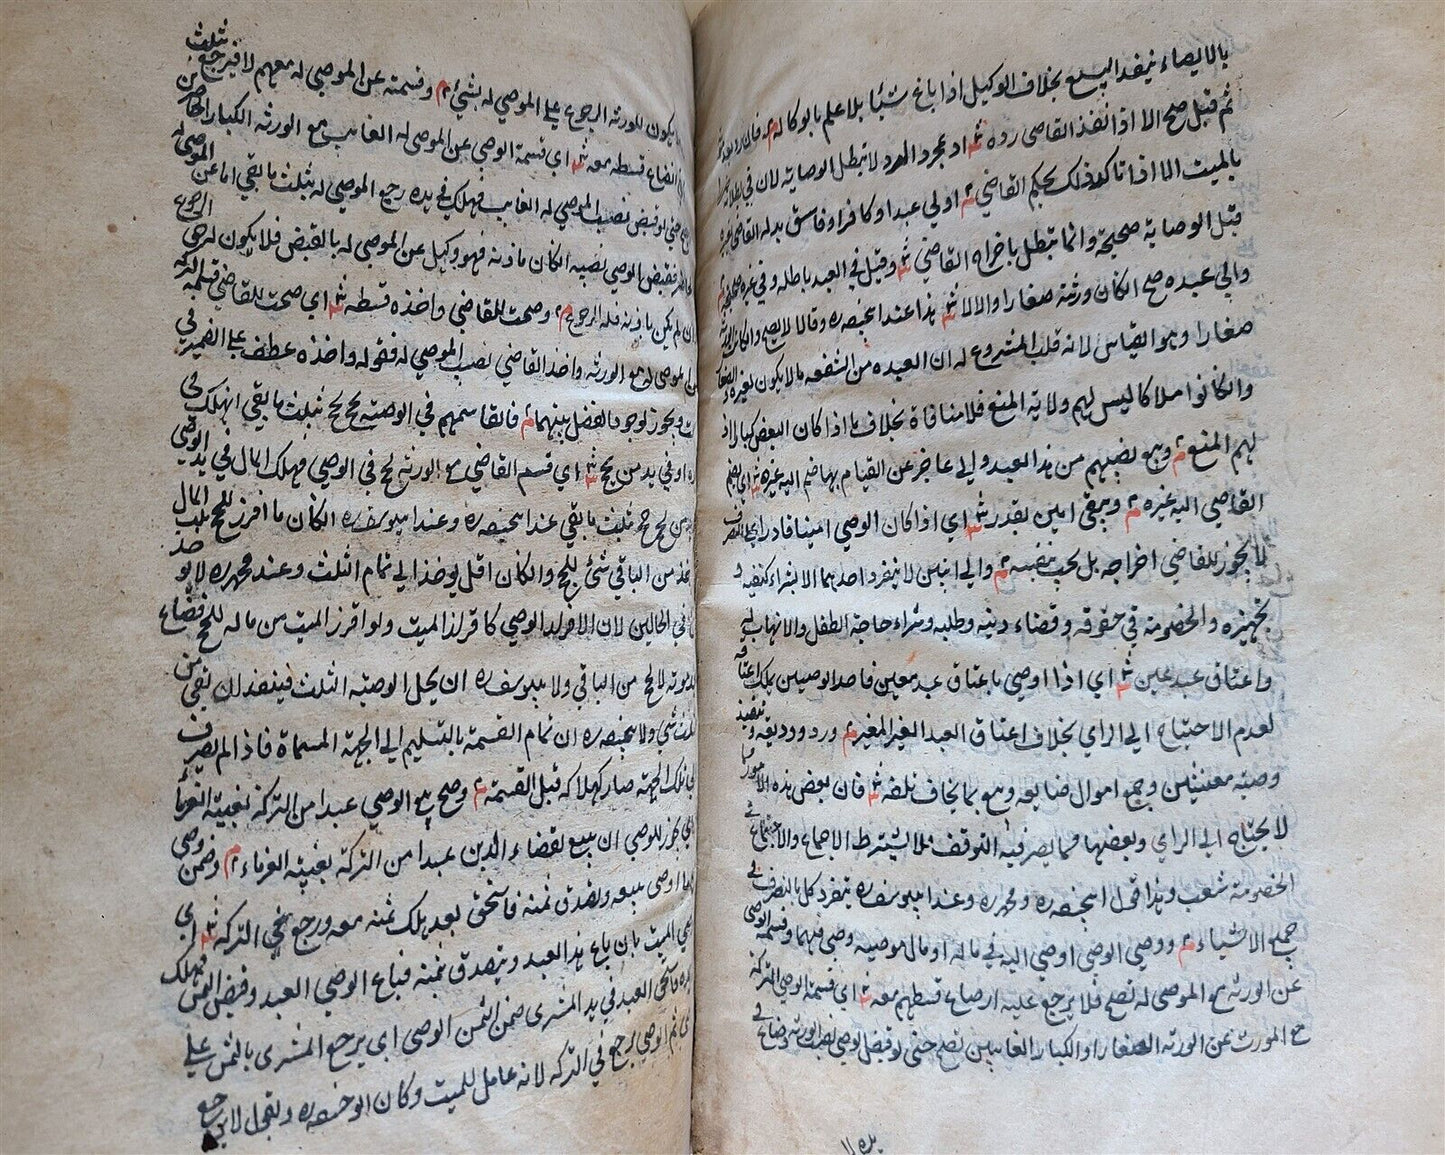 بالايصاء ينفذ البيع بخلاف الوكيل اذا باع شيئا بلا علم بالوكالة م فان رد بعد
ثم قبل صح الا اذا نفذ القاضى رده ش اذ بمجرد الرد لا تبطل الوصاية لان فى
بالميت الا اذا تاكد ذلك بحكم القاضي م او لي عبد او كافر او فاسق بدله القاضى
قبل الوصاية صحيحة وانما تبطل باخراج القاضي ش وقيل في العبد باطلة وفي غيره صحيحة
والى عبده صح ان كان ورثته صغارا والا لا ش هذا عند ابيحنيفه ره وقالا لا يصح وان كان
صغارا وهو القياس لانه قلب المشروع له ان العبد من الشفقه ما لا يكون لغيره
وان كانوا ملاكا ليس لهم ولاية المنع فلا منافاة بخلاف ما اذا كان البعض كبارا اذ
لهم المنع م وبيع نصيبهم من هذا العبد والى عاجز عن القيام بها ضم اليه غيره ش اي يضم
القاضي اليه غيره م ويبقى امين يقدر ش اي اذا كان الوصي امينا قادرا على التصرف
لا يجوز للقاضي اخراجه بل يجب تبقيته م والى اثنين لا ينفرد احدهما الا بشراء كفنه و
تجهيزه والخصومة في حقوقه وقضاء دينه وطلبه وشراء حاجة الطفل والاتهاب له
واعتاق عبد عين ش اي اذا اوصي باعتاق عبد معين فاحد الوصيين يملك اعتاقه
لعدم الاحتياج الى الراي بخلاف اعتاق العبد الغير المعين م ورد وديعة وتنفيذ
وصية معينتين وجمع اموال ضايعة وبيع ما يخاف تلفه ش فان بعض هذه الامور
لا يحتاج الى الراي وبعضها مما يضر فيه التوقف فلا يشترط الاجماع والاجتماع في
الخصومة شعب وهذا قول ابيحنيفه ره ومحمد ره وعند ابيوسف ره ينفرد كل بالتصرف في
جميع الاشياء م ووصي الوصي اوصي اليه في ماله او مال موصيه وصي فيهما وقسمة الوصي
عن الورثه مع الموصى له تصح فلا يرجع عليه ان ضاع قسطهم معه ش اي قسمة الوصي التركة
مع الموصى له عن الورثه الصغار او الكبار الغايبين تصح حتى لو قبض الوصي نصيب الورثه وضاع في
يده لا
يكون للورثه الرجوع على الموصي له بشيئ م وقسمته عن الموصي له معهم لا فيرجع بثلث
ضاع قسطه معه ش اي قسمة الوصي عن الموصى له الغائب مع الورثه الكبار الحاضرين
حتى لو قبض نصيب الموصي له الغايب فهلك في يده رجع الموصي له بثلث ما بقي اما عن الموصى له
فقبض الوصي نصيبه ان كان باذنه فهو وكيل عن الموصي له بالقبض فلا يكون له حق الرجوع
وان لم يكن باذنه فله الرجوع م وصحت للقاضي واخذه قسطه ش اي صحت للقاضي قسمة التركه
عن الموصى له مع الورثه واخذ القاضي نصيب الموصي له فقوله واخذه عطف على الضمير في
صحت ويجوز لوجود الفصل بينهما م فان قاسمهم في الوصية بحج حج بثلث ما بقي ان هلك في
يده او في يد من يحج ش اي قسم القاضي مع الورثه لحج في الوصي فهلك المال في يد الوصي
من يحج حج بثلث ما بقي عند ابيحنيفه ره وعند ابيوسف ره ان كان ما افرز للحج ثلث المال
لا يؤخذ من الباقي شئ للحج وان كان اقل يؤخذ الى تمام الثلث وعند محمد ره لا يوخذ
شئ في الحالين لان الافراز الوصي كافراز الميت ولو افرز الميت من ماله للحج فضاع
بعد موته لا حج من الباقي ولابيوسف ره ان محل الوصية الثلث فينفذ ان بقي من
الثلث شي ولابيحنيفه ره ان تمام القسمة بالتسليم الى الجهة المسماة فاذا لم يصرف
الى تلك الجهة صار كهلاكه قبل القسمة م وصح بيع الوصي عبدا من التركة بغيبة الغرماء
اي يجوز للوصي ان يبيع لقضاء الدين عبدا من التركة بغيبة الغرماء م وضمن وصي
باع ما اوصى ببيعه وتصدق ثمنه فاستحق بعد هلك ثمنه معه ورجع في التركه ش اي
اوصي الميت بان باع هذا العبد ويتصدق بثمنه فباع الوصي العبد وقبض الثمن فهلك
في يده فاستحق العبد في يد المشترى ضمن الثمن الوصى اى يرجع المشترى بالثمن على
الوصي ثم الوصي يرجع في التركه لانه عامل للميت وكان ابو حنيفه ره يقول لا يرجع